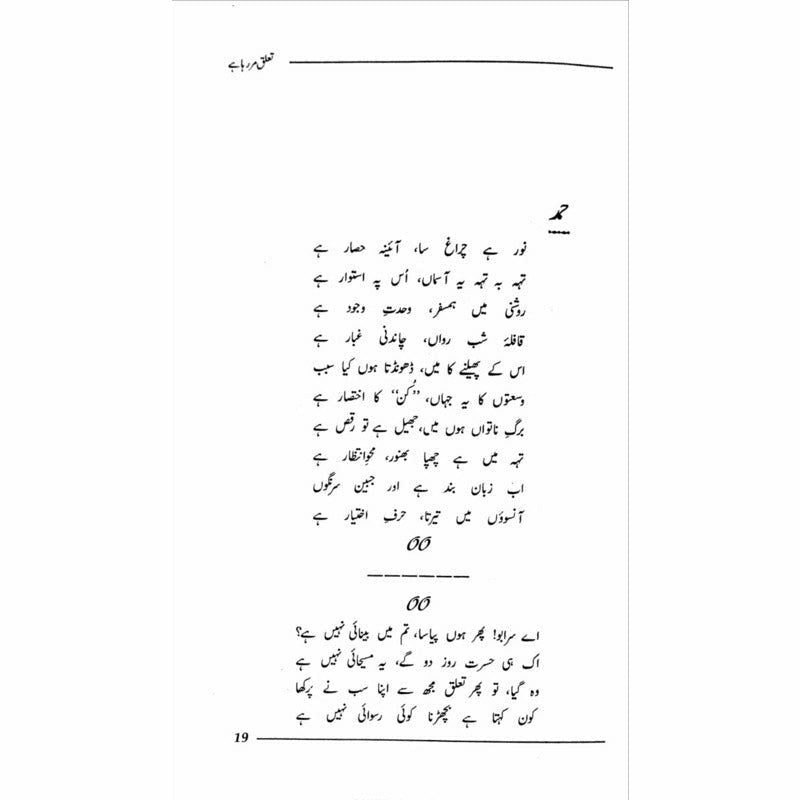 تعلق مر رہا ہے
حمد
نور ہے چراغ سا، آئینہ حصار ہے
تہہ بہ تہہ یہ آسماں، اُس پہ استوار ہے
روشنی میں ہمسفر، وحدتِ وجود ہے
قافلۂ شب رواں، چاندنی غبار ہے
اس کے پھیلنے کا میں، ڈھونڈتا ہوں کیا سبب
وسعتوں کا یہ جہاں، ”کُن“ کا اختصار ہے
برگِ ناتواں ہوں میں، جھیل ہے تو رقص ہے
تہہ میں ہے چھپا بھنور، محوِ انتظار ہے
اب زبان بند ہے اور جبین سرنگوں
آنسوؤں میں تیرتا، حرفِ اختیار ہے
اے سرابو! پھر ہوں پیاسا، تم میں بینائی نہیں ہے؟
اک ہی حسرت روز دو گے، یہ مسیحائی نہیں ہے
وہ گیا، تو پھر تعلق مجھ سے اپنا سب نے پرکھا
کون کہتا ہے بچھڑنا کوئی رسوائی نہیں ہے
19